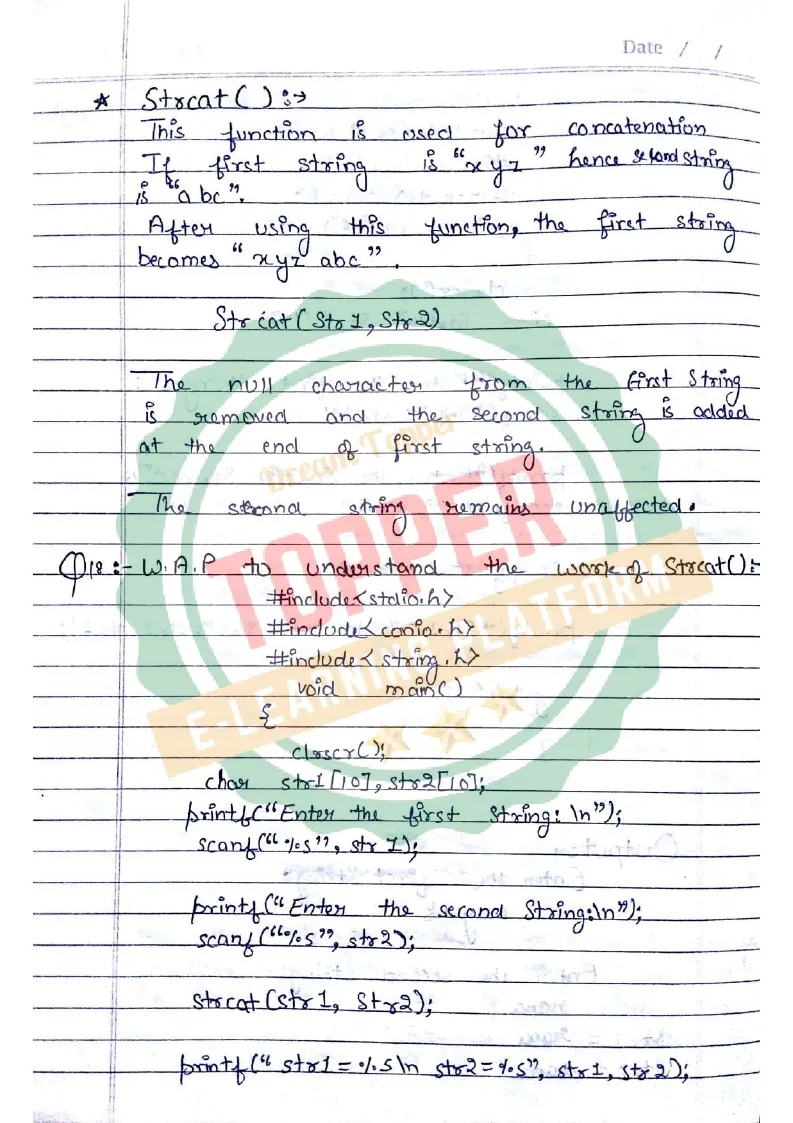 Date / /
* Strcat() :→
This function is used for concatenation
If first string is "xyz" hence second string
is "abc".
After using this function, the first string
becomes "xyz abc".
Strcat(Str1, Str2)
The null character from the first String
is removed and the second string is added
at the end of first string.
The second string remains unaffected.
Q18:- W.A.P to understand the work of Strcat():-
#include<stdio.h>
#include<conio.h>
#include<string.h>
void main()
{
clrscr();
char str1[10], str2[10];
printf("Enter the first String: \n");
scanf("%s", str1);
printf("Enter the second String:\n");
scanf("%s", str2);
strcat(str1, Str2);
printf(" str1=%s\n str2=%s", str1, str2);
Dream Topper
TOPPER
E-LEARNING PLATFORM